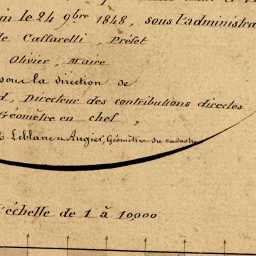 le 24 9bre 1848, sous l'administra
Caffarelli, Préfet
Olivier, Maire
sous la direction de
Directeur des contributions directes
Géomètre en chef,
Leblanc Augier, Géomètre du cadastre
échelle de 1 à 10000